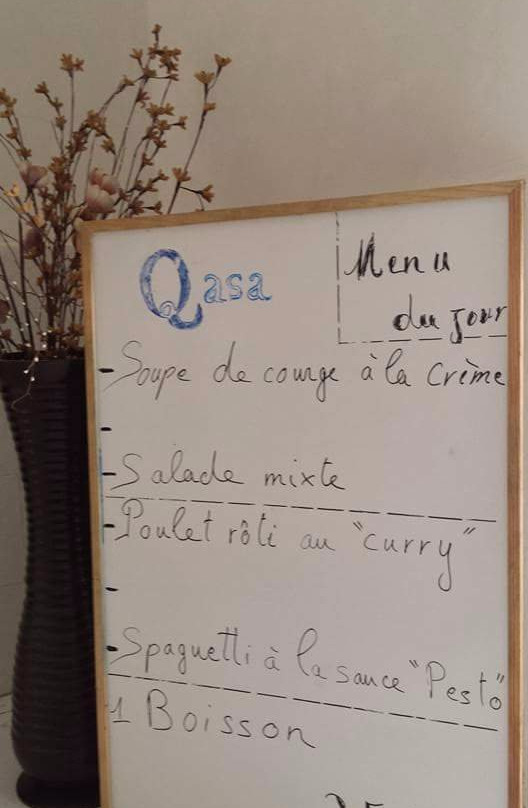 Qasa
Menu
du Jour
- Soupe de courge à la Crème
-
- Salade mixte
- Poulet rôti au "curry"
-
- Spaguetti à la sauce "Pesto"
1 Boisson